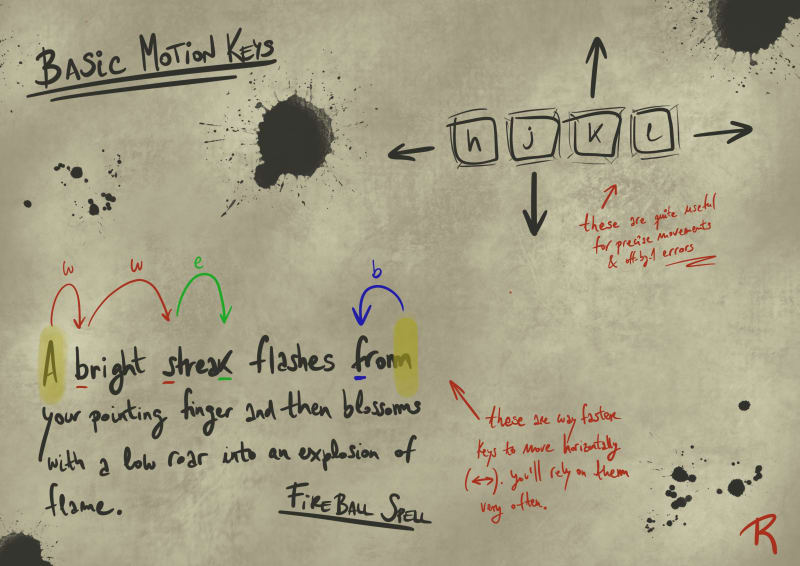 BASIC MOTION KEYS
h j k l
these are quite useful
for precise movements
& off-by-1 errors
w w e b
A bright streak flashes from
your pointing finger and then blossoms
with a low roar into an explosion of
flame.
FIREBALL SPELL
these are way faster
keys to move horizontally
(↔). you'll rely on them
very often.
R